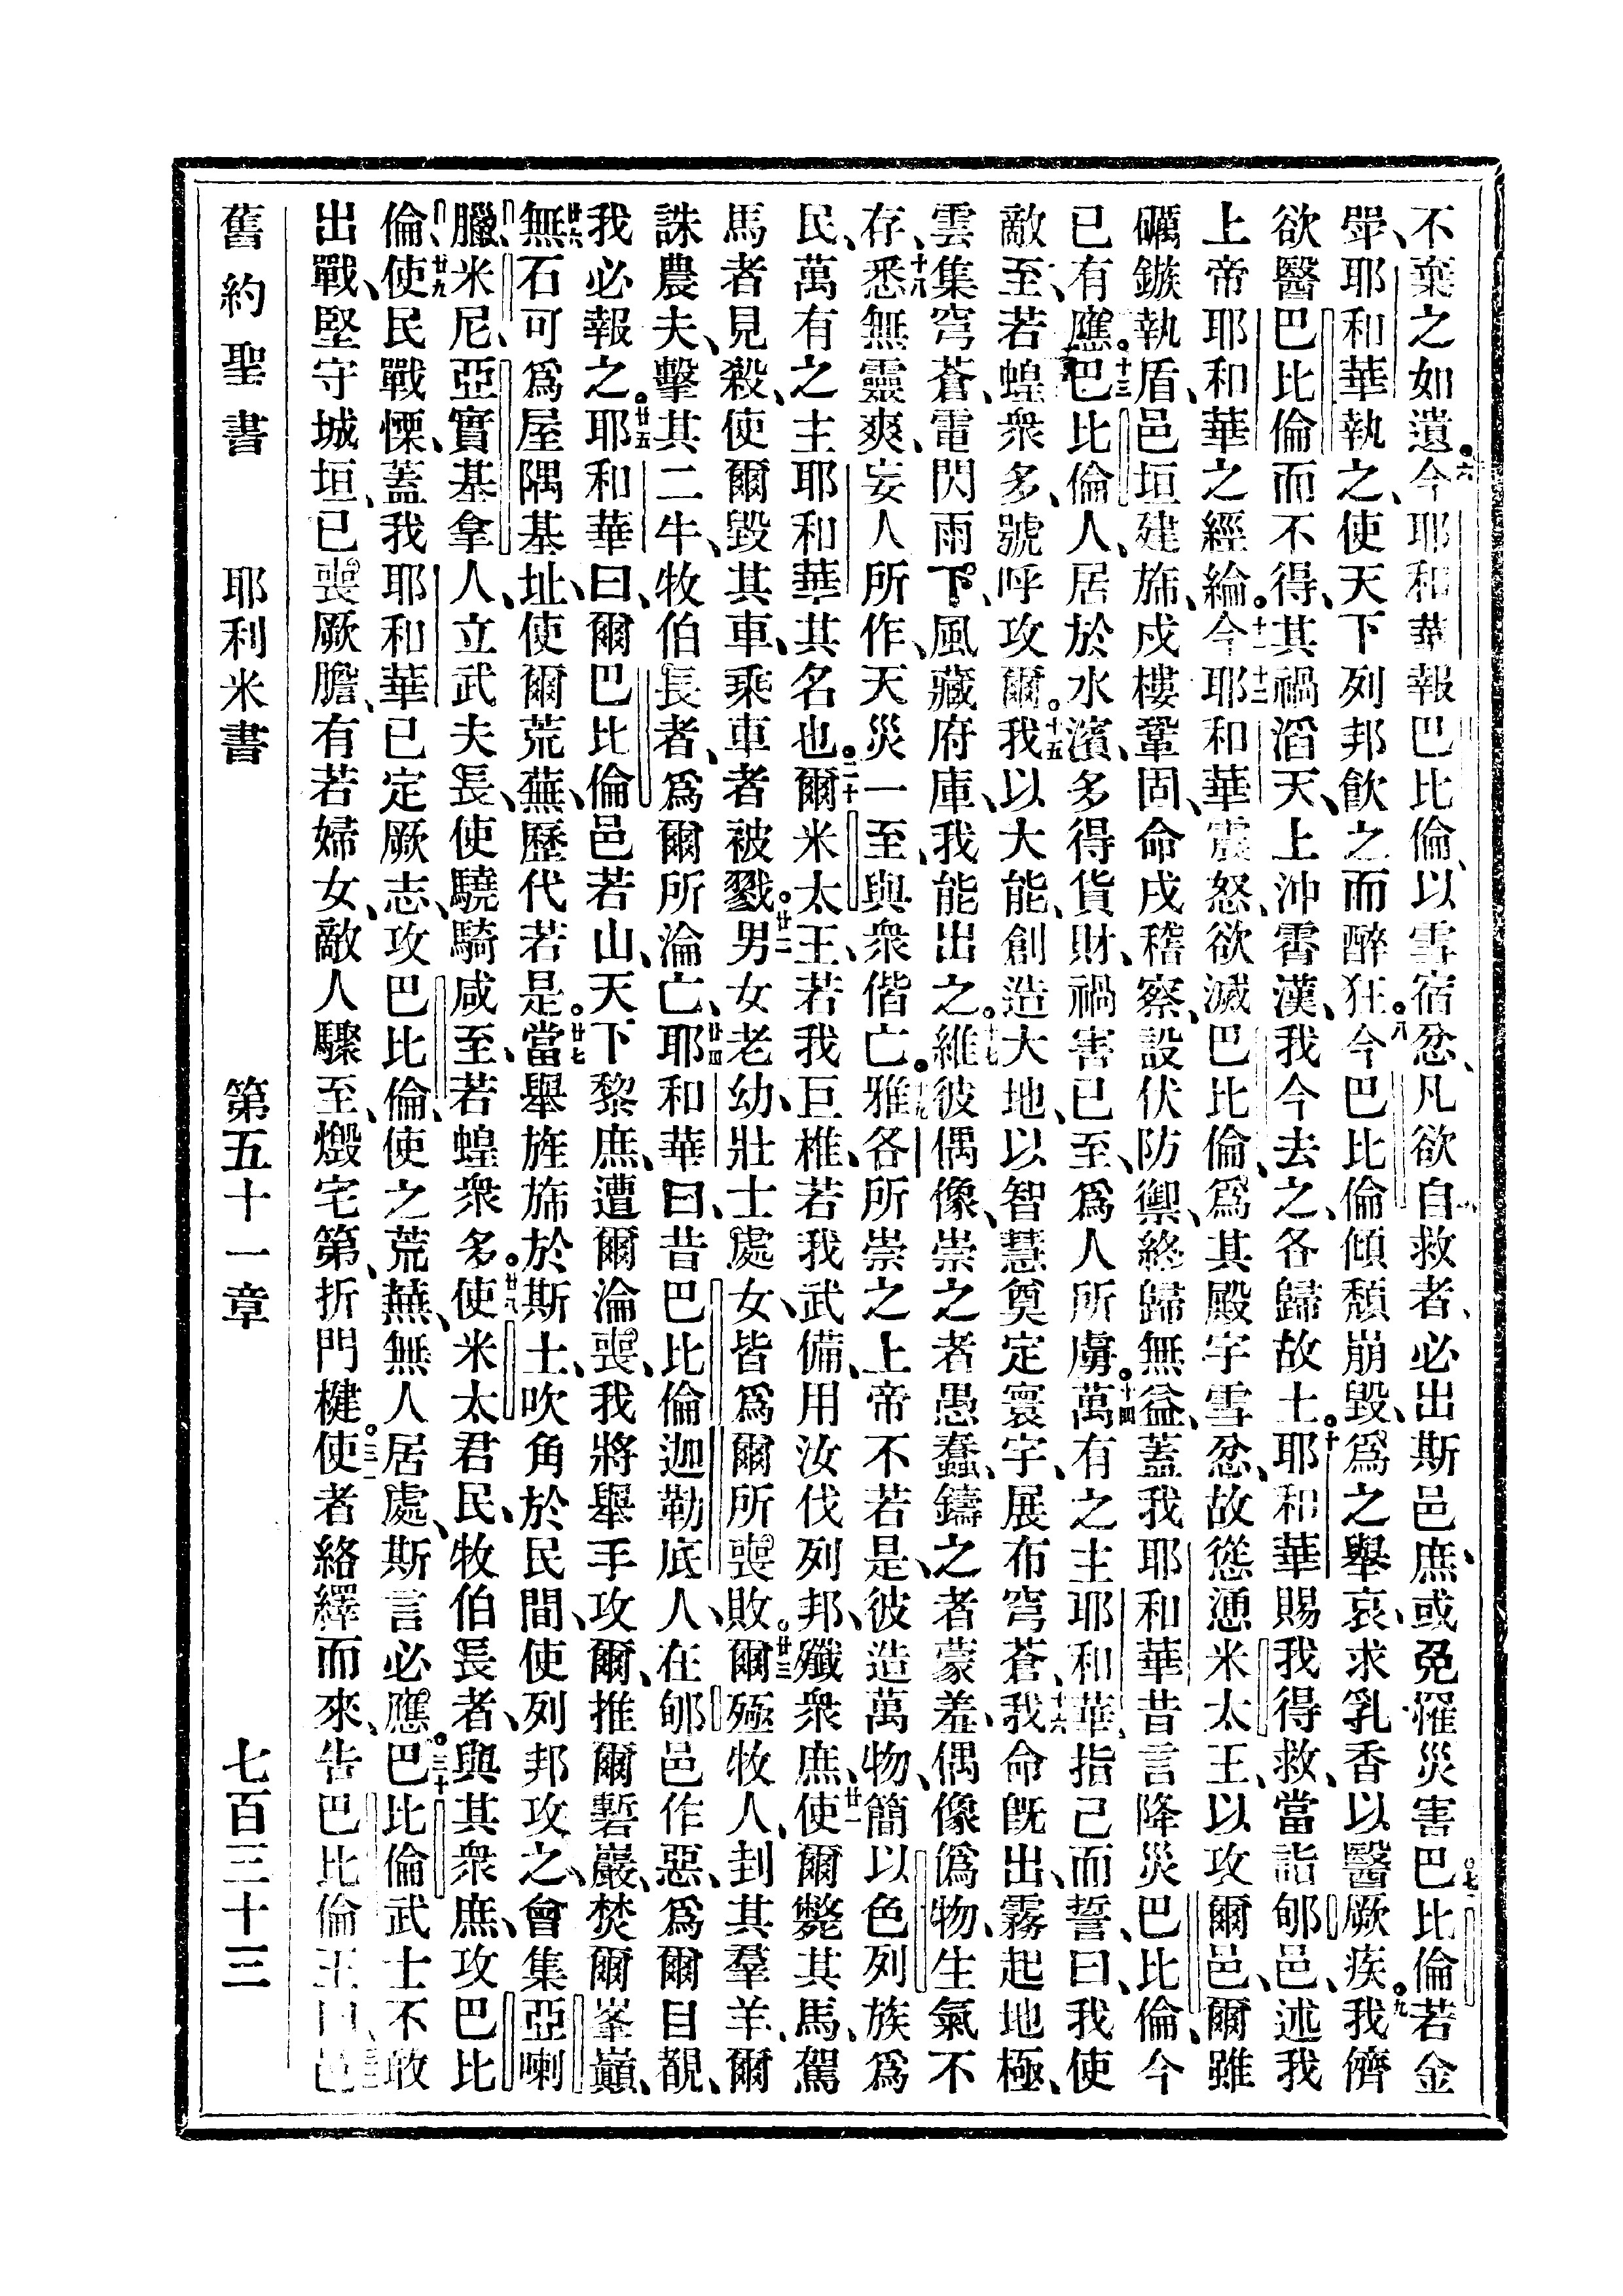 不棄之如遺。六今耶和華報巴比倫、以雪宿忿、凡欲自救者、必出斯邑、庶或免罹災害。七巴比倫若金
斝、耶和華執之、使天下列邦飮之而醉狂。八今巴比倫傾頹崩毀、爲之舉哀、求乳香以醫厥疾。九我儕
欲醫巴比倫而不得、其禍滔天、上沖霄漢、我今去之、各歸故土。十耶和華賜我得救、當詣郇邑、述我
上帝耶和華之經綸。十一今耶和華震怒、欲滅巴比倫、爲其殿宇雪忿、故慫慂米太王、以攻爾邑、十二爾雖
礪鏃執盾、邑垣建旆、戍樓鞏固、命戍稽察、設伏防禦、終歸無益、蓋我耶和華昔言降災巴比倫、今
已有應。十三巴比倫人、居於水濱、多得貨財、禍害已至、爲人所虜。十四萬有之主耶和華、指己而誓、曰、我使
敵至、若蝗衆多、號呼攻爾。十五我以大能、創造大地、以智慧奠定寰宇、展布穹蒼、十六我命旣出、霧起地極、
雲集穹蒼、電閃雨下、風藏府庫、我能出之。十七維彼偶像、崇之者愚蠢、鑄之者蒙羞、偶像僞物、生氣不
存、十八悉無靈爽、妄人所作、天災一至、與衆偕亡。十九雅各所崇之上帝不若是、彼造萬物、簡以色列族爲
民、萬有之主耶和華其名也。二十爾米太王、若我巨椎、若我武備、用汝伐列邦、殲衆庶、廿一使爾斃其馬、駕
馬者見殺、使爾毀其車、乘車者被戮。廿二男女老幼、壯士處女、皆爲爾所喪敗。廿三爾殛牧人、刲其羣羊、爾
誅農夫、擊其二牛、牧伯長者、爲爾所淪亡、廿四耶和華曰、昔巴比倫迦勒底人、在郇邑作惡、爲爾目覩、
我必報之。廿五耶和華曰、爾巴比倫邑若山、天下黎庶、遭爾淪喪、我將舉手攻爾、推爾塹巖、焚爾峯巔、
廿六無石可爲屋隅基址、使爾荒蕪、歷代若是。廿七當舉旌旆於斯土、吹角於民間、使列邦攻之、會集亞喇
臘、米尼、亞實基拿人、立武夫長、使驍騎咸至、若蝗衆多。廿八使米太君民、牧伯長者、與其衆庶、攻巴比
倫、廿九使民戰慄、蓋我耶和華已定厥志、攻巴比倫、使之荒蕪、無人居處、斯言必應。三十巴比倫武士不敢
出戰、堅守城垣、已喪厥膽、有若婦女、敵人驟至、燬宅第、折門楗。三一使者絡繹而來、告巴比倫王曰、邑
舊約聖書 耶利米書 第五十一章 七百三十三